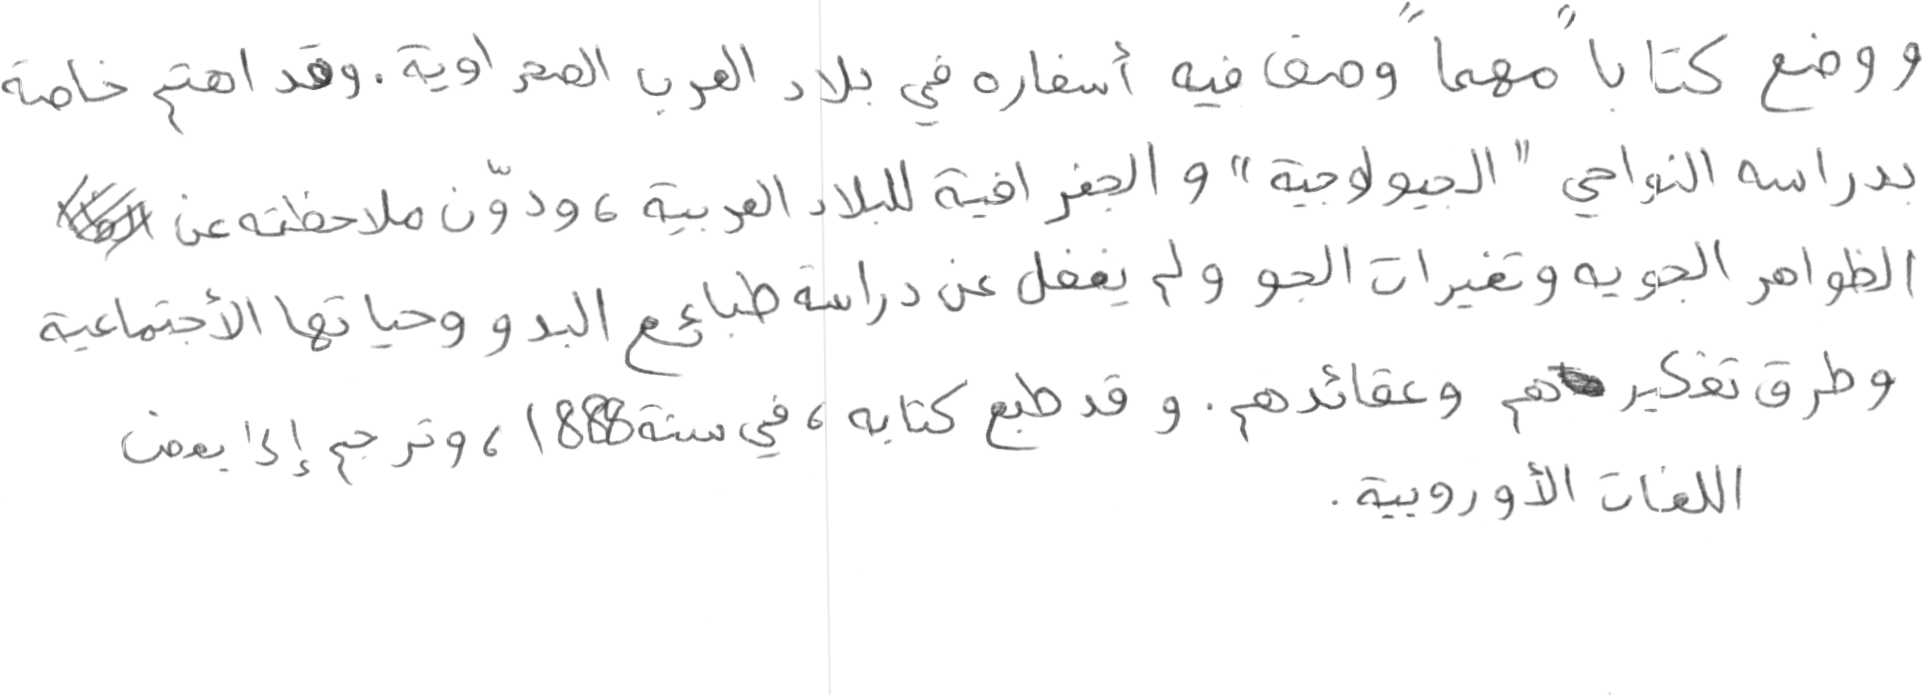 ووضع كتاباً مهماً وصف فيه أسفاره في بلاد العرب الصحراوية. وقد اهتم خاصة
بدراسه النواحي "الجيولوجية" و الجغرافية للبلاد العربية، ودوّن ملاحظته عن
الظواهر الجويه وتغيرات الجو ولم يغفل عن دراسة طبائع البدو وحياتها الأجتماعية
وطرق تفكيرهم وعقائدهم. و قد طبع كتابه، في سنة 1888، وترجم إلى بعض
اللغات الأوروبية.